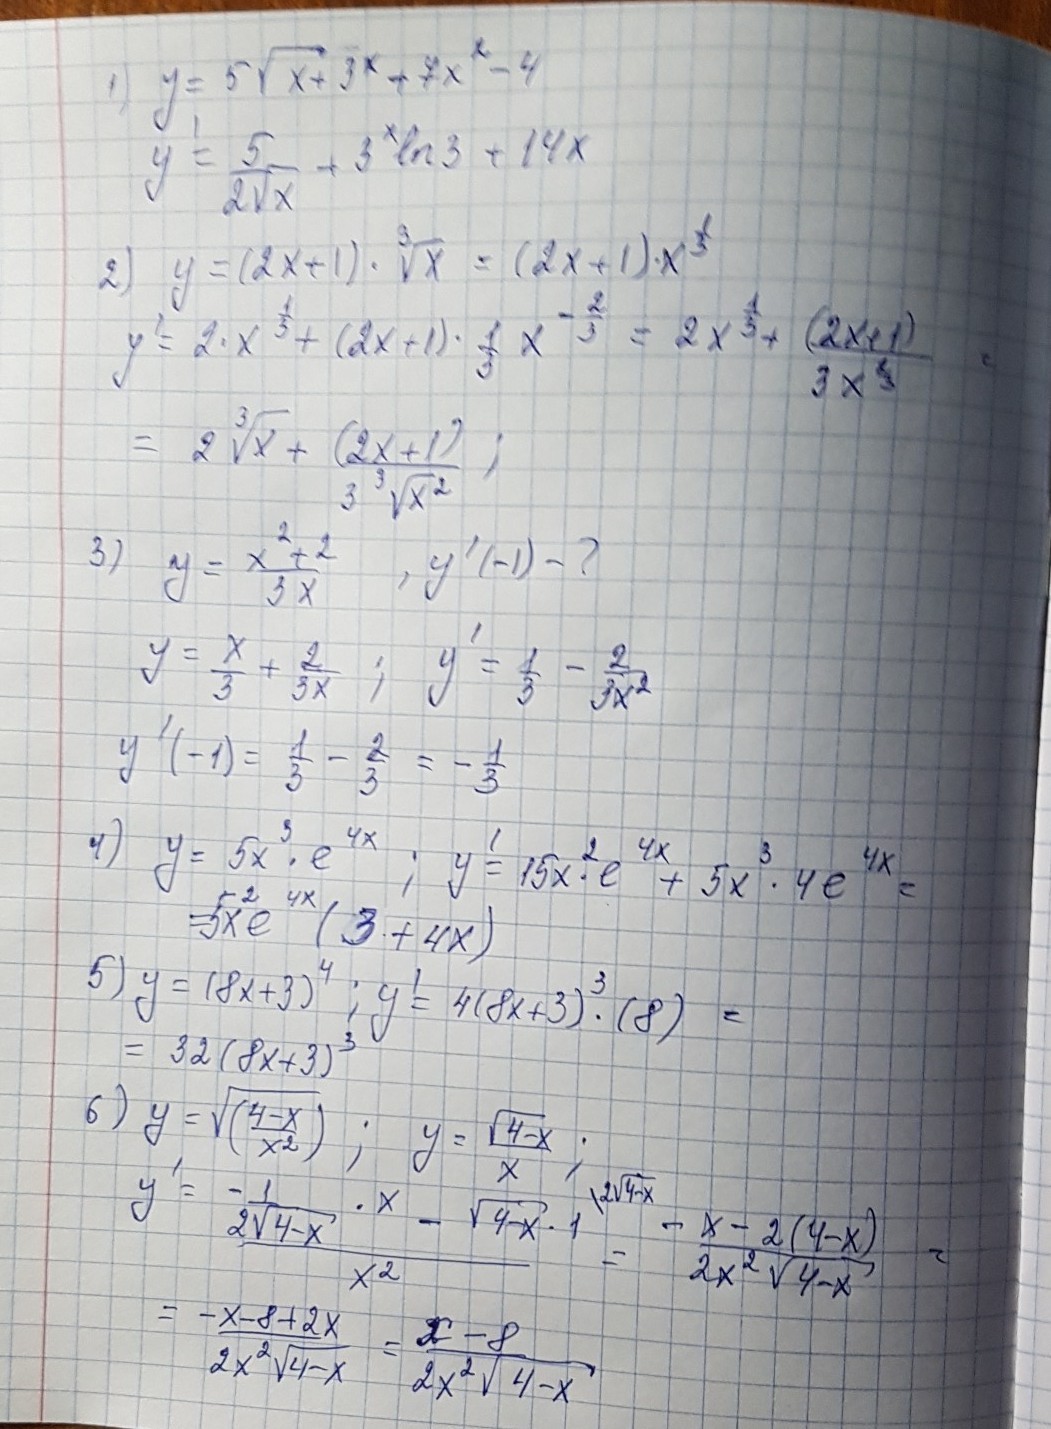 1) y = 5√x + 3^x + 7x^2 - 4
y' = 5/(2√x) + 3^x ln3 + 14x
2) y = (2x+1) · ∛x = (2x+1) · x^(1/3)
y' = 2 · x^(1/3) + (2x+1) · 1/3 x^(-2/3) = 2x^(1/3) + (2x+1)/(3x^(2/3)) =
= 2∛x + (2x+1)/(3∛x^2) ;
3) y = (x^2+2)/(3x) , y'(-1) - ?
y = x/3 + 2/(3x) ; y' = 1/3 - 2/(3x^2)
y'(-1) = 1/3 - 2/3 = -1/3
4) y = 5x^3 · e^(4x) ; y' = 15x^2 · e^(4x) + 5x^3 · 4e^(4x) =
= 5x^2 e^(4x) (3 + 4x)
5) y = (8x+3)^4 ; y' = 4(8x+3)^3 · (8) =
= 32(8x+3)^3
6) y = √((4-x)/x^2) ; y = √(4-x)/x ;
y' = (-1/(2√(4-x)) · x - √(4-x) · 1 \2√(4-x))/x^2 = (-x - 2(4-x))/(2x^2√(4-x)) =
= (-x-8+2x)/(2x^2√(4-x)) = (x-8)/(2x^2√(4-x))